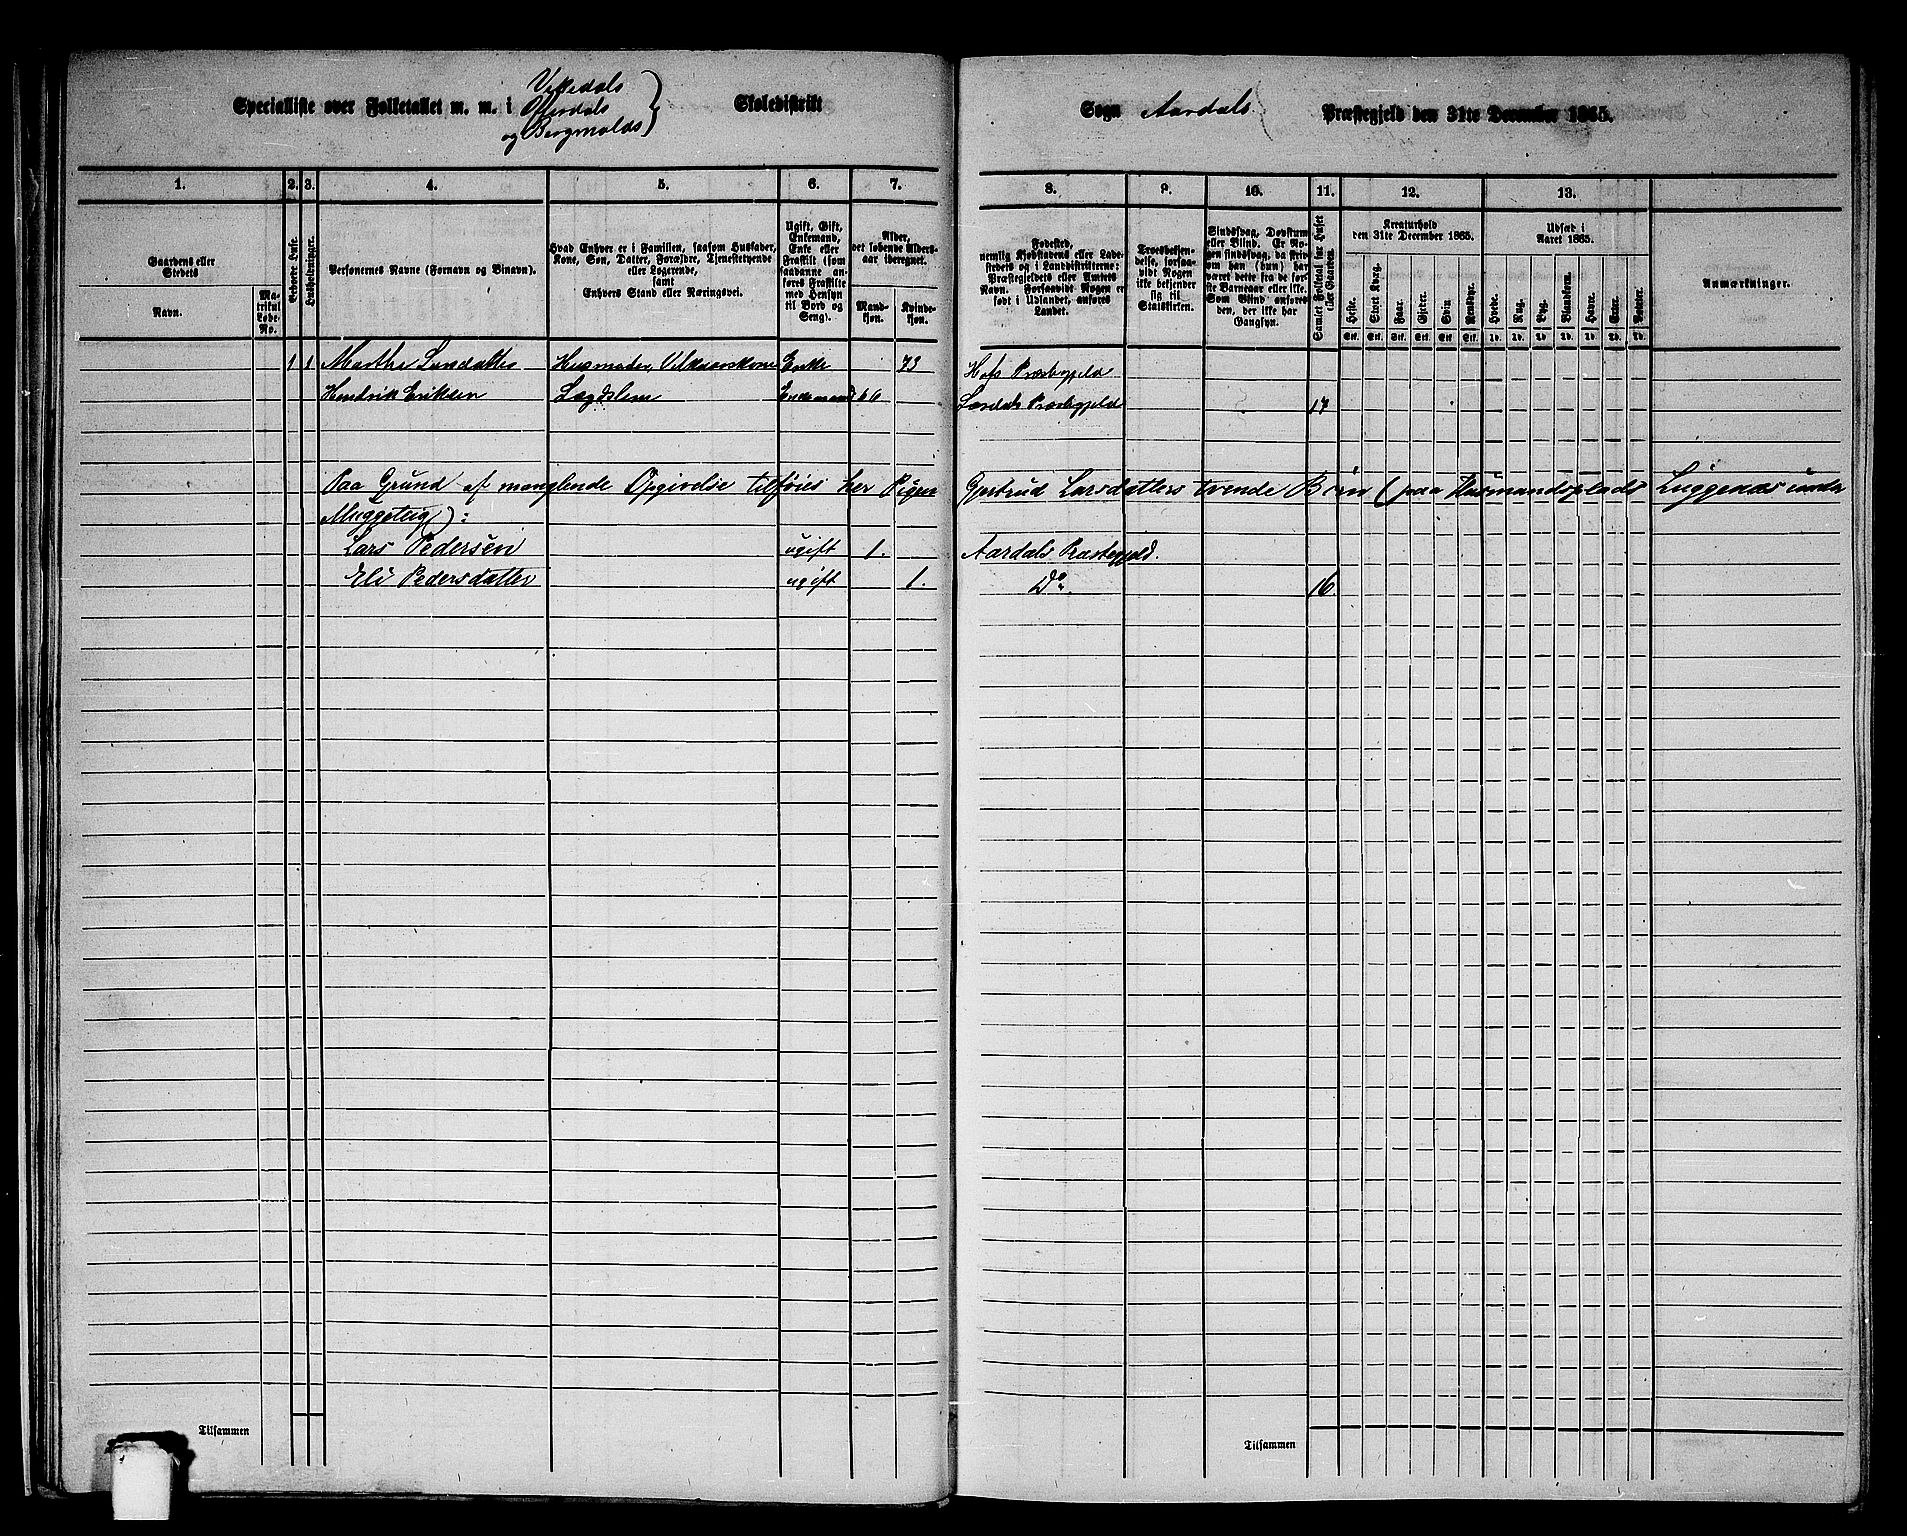 Specialliste over Folketallet m. m. i Vikedals
Ofredals
og Bergmolds
Skoledistrikt
Sogn Aardals Præstegjeld den 31te December 1865.
1. 2. 3. 4. 5. 6. 7. 8. 9. 10. 11. 12. 13.
Gaardens eller Stedets
Navn.
Matrikul Løbe-No.
Beboede Huse.
Husholdninger.
Personernes Navne (Fornavn og Binavn).
Hvad Enhver er i Familien, saasom Husfader, Kone, Søn, Datter, Forældre, Tjenestetyende eller Logerende,
samt
Enhvers Stand eller Næringsvei.
Ugift, Gift, Enkemand, Enke eller Fraskilt (som saadanne anføres Fraskilte med Hensyn til Bord og Seng).
Alder, det løbende Aldersaar iberegnet.
Mandkjøn.
Kvindekjøn.
Fødested, nemlig Kjøbstadens eller Ladestedets og i Landdistrikterne: Præstegjeldets eller Amtets Navn. Forsaavidt Nogen er født i Udlandet, anføres Landet.
Troesbekjendelse, forsaavidt Nogen ikke bekjender sig til Statskirken.
Sindssvag, Døvstum eller Blind. Er Nogen sindssvag, da hvorom han (hun) har været dette fra de første Barneaar eller ikke. Som Blind anføres den, der ikke har Gangsyn.
Samlet Folketal for Huset eller Gaarden.
Kreaturhold den 31te December 1865.
Heste. Stort Kvæg. Faar. Gjeder. Svin. Rensdyr.
Stk. Stk. Stk. Stk. Stk. Stk.
Udsæd i Aaret 1865.
Hvede. Rug. Byg. Blandkorn. Havre. Erter. Poteter.
Td. Td. Td. Td. Td. Td. Td.
Anmærkninger.
1 1 Marthe Larsdatter Husmoder, Vilkaarskone Enke 73 Hafs Præstegjeld
Hendrik Eriksen Lægdslem Enkemand 66 Lærdals Præstegjeld 17
Paa Grund af manglende Opgivelse tilføies her Pigen Gjertrud Larsdatters tvende Børn (paa Husmandsplads Luggenæs under
Muggeteig):
Lars Pedersen ugift 1. Aardals Præstegjeld.
Eli Pedersdatter ugift 1. Do. 16
Tilsammen
Tilsammen